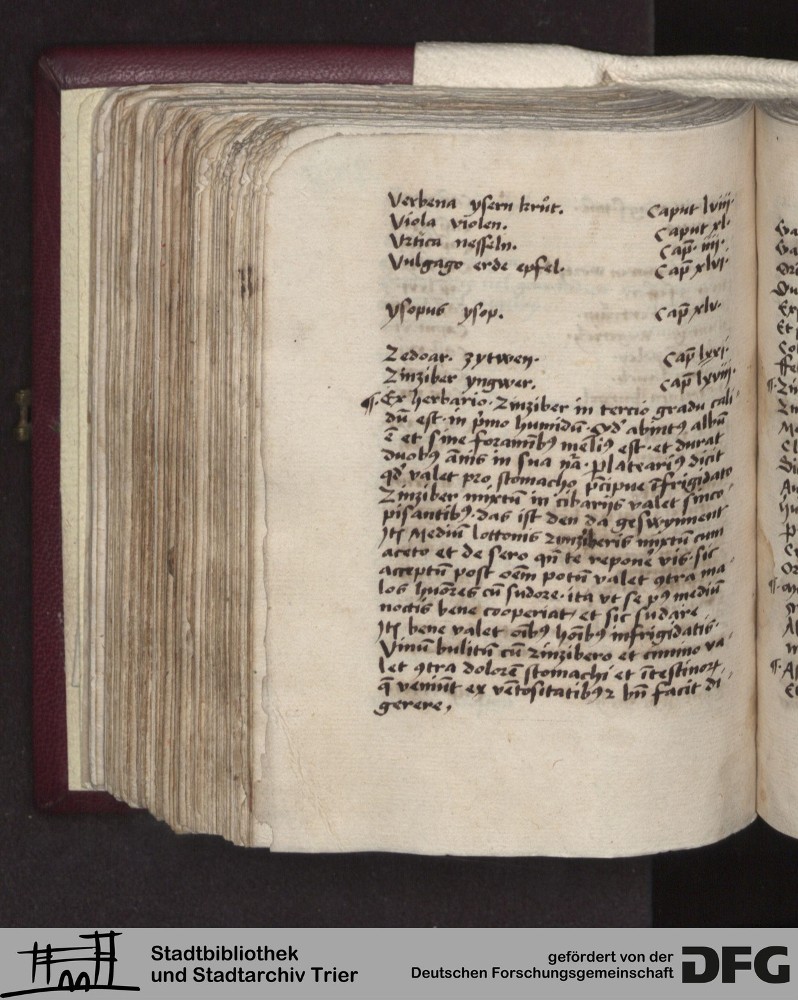 Verbena ysern krůt. Caput lviii·
Viola violen. Caput xl·
Vrtica nesseln. Cap̄· iiii·
Vulgago erde epfel· Cap̄ xlvi·
ysopus ysop. Cap̄ xlv·
Zedoar· zytwen· Cap̄ lxxi·
Zinziber yngwer. Cap̄ lxviii·
¶ Ex herbario· Zinziber in tercio gradu cali
dū est· in p̄mo humidū· qd' abintꝰ albū
ē et sine foraminibꝰ meliꝰ est· et durat
duobꝰ ānis in sua nā· plateariꝰ dicit
qd' valet pro stomacho p̄cipue īfrigidato
Zinziber mixtū in cibarijs valet sinco
pisantibꝰ· das ist den da geswynnent
Itē Mediū lottonis zinziberis mixtū cum
aceto et de sero qn̄ te reponeͬ vis· sic
acceptū post oēm potū valet ꝯtra ma
los huōres cū sudore· ita vt se pꝰ mediū
noctis bene cooperiat· et sic sudare
Itē bene valet oībꝰ hoībꝰ infrigidatis·
Vinū bulitū cū zinzibero et cimino va
let ꝯtra dolorē stomachi et ītestinorꝝ
q̄ veniūt ex vētositatibꝰ ⁊ bn̄ facit di
gerere,
Stadtbibliothek
und Stadtarchiv Trier
gefördert von der
Deutschen Forschungsgemeinschaft
DFG